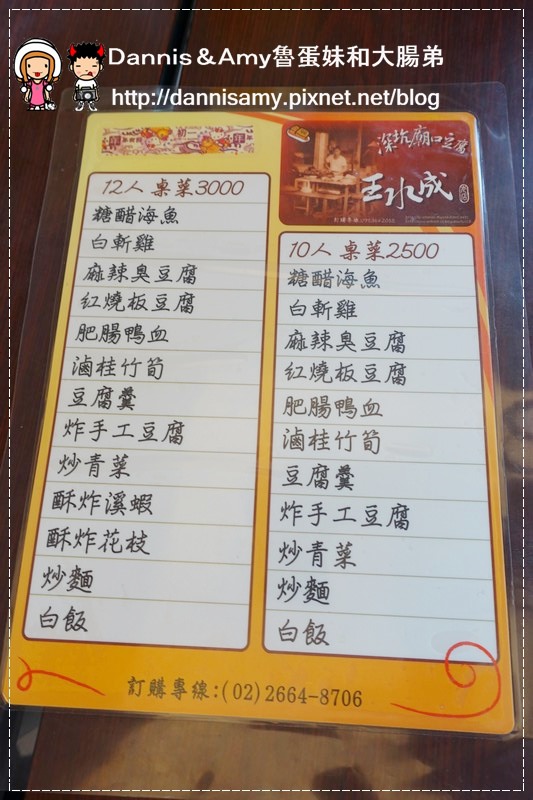 Dannis&Amy魯蛋妹和大腸弟
http://dannisamy.pixnet.net/blog
深坑廟口豆腐
王水成
12人 桌菜3000
糖醋海魚
白斬雞
麻辣臭豆腐
紅燒板豆腐
肥腸鴨血
滷桂竹筍
豆腐羹
炸手工豆腐
炒青菜
酥炸溪蝦
酥炸花枝
炒麵
白飯
10人 桌菜2500
糖醋海魚
白斬雞
麻辣臭豆腐
紅燒板豆腐
肥腸鴨血
滷桂竹筍
豆腐羹
炸手工豆腐
炒青菜
炒麵
白飯
訂購專線:(02)2664-8706